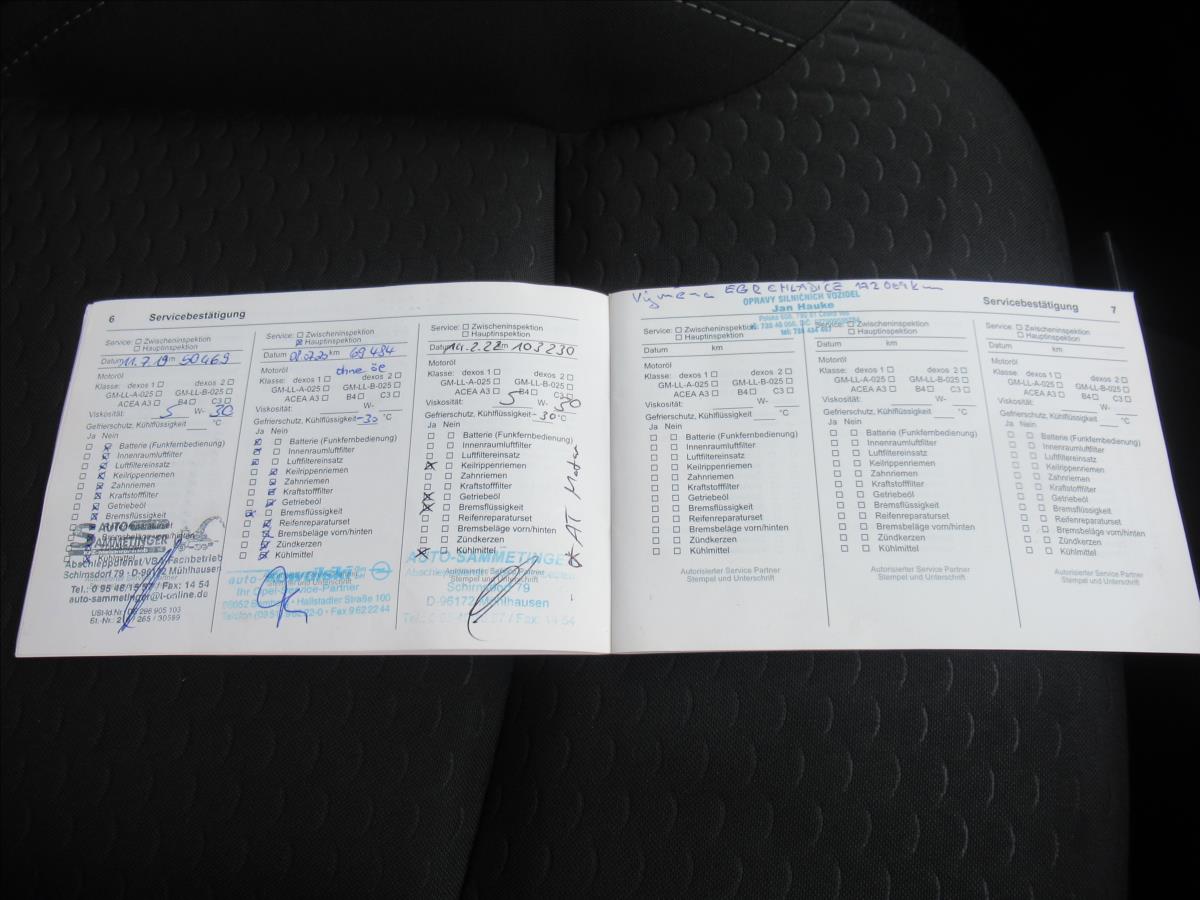 6 Servicebestätigung
Service: ☐ Zwischeninspektion
☐ Hauptinspektion
Datum 11.7.19 km 50469
Motoröl
Klasse: dexos 1 ☐ dexos 2 ☐
GM-LL-A-025 ☐ GM-LL-B-025 ☐
ACEA A3 ☐ B4 ☐ C3 ☐
Viskosität: 5 W- 30
Gefrierschutz, Kühlflüssigkeit °C
Ja Nein
Batterie (Funkfernbedienung)
Innenraumluftfilter
Luftfiltereinsatz
Keilrippenriemen
Zahnriemen
Kraftstofffilter
Getriebeöl
Bremsflüssigkeit
AUTO
SAMMETINGER
Bremsbeläge vorn/hinten
Kühlmittel
Abschleppdienst VBA Fachbetrieb
Schirnsdorf 79 - D-96172 Mühlhausen
auto-sammetinger@t-online.de
Service: ☐ Zwischeninspektion
☒ Hauptinspektion
Datum km 69484
Motoröl ohne öl
Klasse: dexos 1 ☐ dexos 2 ☐
GM-LL-A-025 ☐ GM-LL-B-025 ☐
ACEA A3 ☐ B4 ☐ C3 ☐
Viskosität: W-
Gefrierschutz, Kühlflüssigkeit -30 °C
Ja Nein
Batterie (Funkfernbedienung)
Innenraumluftfilter
Luftfiltereinsatz
Keilrippenriemen
Zahnriemen
Kraftstofffilter
Getriebeöl
Bremsflüssigkeit
Reifenreparaturset
Bremsbeläge vorn/hinten
Zündkerzen
Kühlmittel
auto- Kowalski
Ihr Opel-Service-Partner
Hallstadter Straße 100
Fax 9 62 22 44
Service: ☐ Zwischeninspektion
☐ Hauptinspektion
Datum 14.2.22 km 103230
Motoröl
Klasse: dexos 1 ☐ dexos 2 ☐
GM-LL-A-025 ☐ GM-LL-B-025 ☐
ACEA A3 ☐ B4 ☐ C3 ☐
Viskosität: 5 W- 30
Gefrierschutz, Kühlflüssigkeit -30 °C
Ja Nein
Batterie (Funkfernbedienung)
Innenraumluftfilter
Luftfiltereinsatz
Keilrippenriemen
Zahnriemen
Kraftstofffilter
Getriebeöl
Bremsflüssigkeit
Reifenreparaturset
Bremsbeläge vorn/hinten
Zündkerzen
Kühlmittel
* AT Motor
AUTO-SAMMETINGER
Autorisierter Service Partner
Stempel und Unterschrift
Schirnsdorf 79
D-96172 Mühlhausen
Výměna EGR CHLADIČE 172064 km
OPRAVY SILNIČNÍCH VOZIDEL
Jan Hauke
Servicebestätigung 7
Service: ☐ Zwischeninspektion
☐ Hauptinspektion
Datum km
Motoröl
Klasse: dexos 1 ☐ dexos 2 ☐
GM-LL-A-025 ☐ GM-LL-B-025 ☐
ACEA A3 ☐ B4 ☐ C3 ☐
Viskosität: W-
Gefrierschutz, Kühlflüssigkeit °C
Ja Nein
☐ ☐ Batterie (Funkfernbedienung)
☐ ☐ Innenraumluftfilter
☐ ☐ Luftfiltereinsatz
☐ ☐ Keilrippenriemen
☐ ☐ Zahnriemen
☐ ☐ Kraftstofffilter
☐ ☐ Getriebeöl
☐ ☐ Bremsflüssigkeit
☐ ☐ Reifenreparaturset
☐ ☐ Bremsbeläge vorn/hinten
☐ ☐ Zündkerzen
☐ ☐ Kühlmittel
Autorisierter Service Partner
Stempel und Unterschrift
Service: ☐ Zwischeninspektion
☐ Hauptinspektion
Datum km
Motoröl
Klasse: dexos 1 ☐ dexos 2 ☐
GM-LL-A-025 ☐ GM-LL-B-025 ☐
ACEA A3 ☐ B4 ☐ C3 ☐
Viskosität: W-
Gefrierschutz, Kühlflüssigkeit °C
Ja Nein
☐ ☐ Batterie (Funkfernbedienung)
☐ ☐ Innenraumluftfilter
☐ ☐ Luftfiltereinsatz
☐ ☐ Keilrippenriemen
☐ ☐ Zahnriemen
☐ ☐ Kraftstofffilter
☐ ☐ Getriebeöl
☐ ☐ Bremsflüssigkeit
☐ ☐ Reifenreparaturset
☐ ☐ Bremsbeläge vorn/hinten
☐ ☐ Zündkerzen
☐ ☐ Kühlmittel
Autorisierter Service Partner
Stempel und Unterschrift
Service: ☐ Zwischeninspektion
☐ Hauptinspektion
Datum km
Motoröl
Klasse: dexos 1 ☐ dexos 2 ☐
GM-LL-A-025 ☐ GM-LL-B-025 ☐
ACEA A3 ☐ B4 ☐ C3 ☐
Viskosität: W-
Gefrierschutz, Kühlflüssigkeit °C
Ja Nein
☐ ☐ Batterie (Funkfernbedienung)
☐ ☐ Innenraumluftfilter
☐ ☐ Luftfiltereinsatz
☐ ☐ Keilrippenriemen
☐ ☐ Zahnriemen
☐ ☐ Kraftstofffilter
☐ ☐ Getriebeöl
☐ ☐ Bremsflüssigkeit
☐ ☐ Reifenreparaturset
☐ ☐ Bremsbeläge vorn/hinten
☐ ☐ Zündkerzen
☐ ☐ Kühlmittel
Autorisierter Service Partner
Stempel und Unterschrift